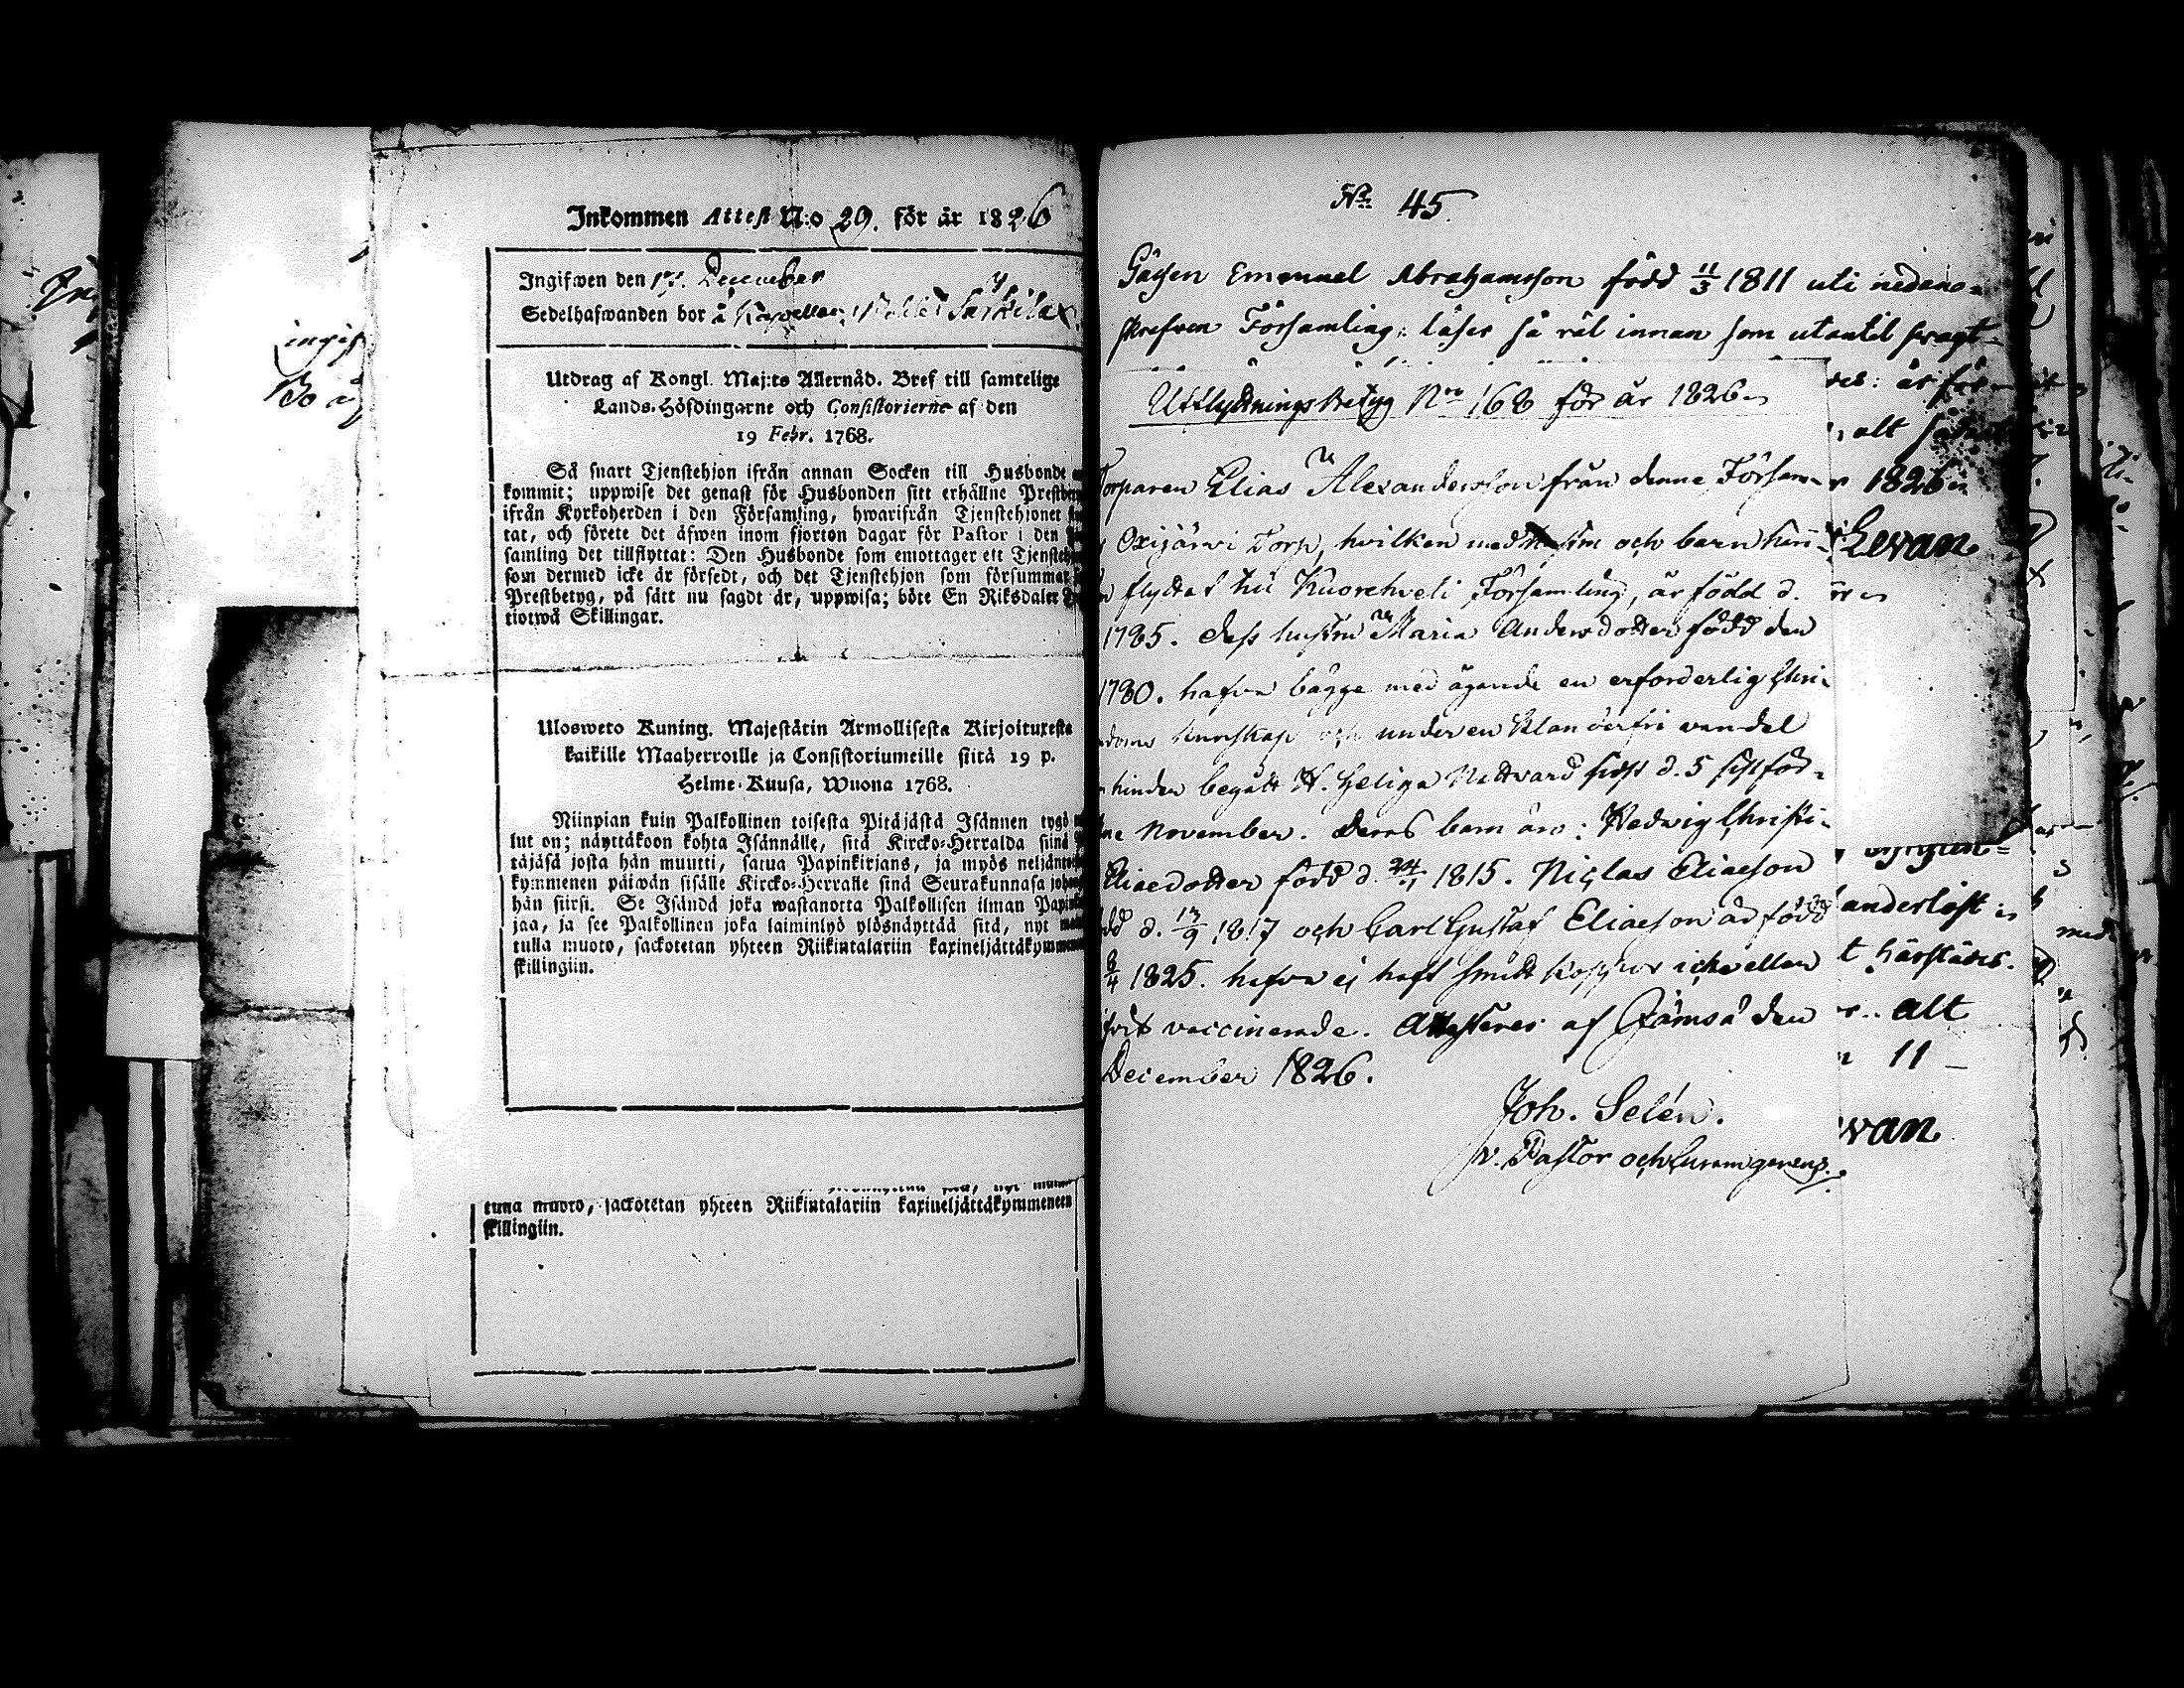 Inkommen Attest N:o 29. för år 1826
Ingifwen den 17. December
Sedelhafwanden bor å Kapellan Bolet Särkilax
Utdrag af Kongl. Maj:ts Allernåd. Bref till samtelige
Lands-Höfdingarne och Consistorierne af den
19 Febr. 1768.
Så snart Tjenstehjon ifrån annan Socken till Husbonde
kommit; uppwise det genast för Husbonden sitt erhållne
ifrån Kyrkoherden i den Församling, hwarifrån Tjenstehjonet
tat, och förete det äfwen inom fjorton dagar för Pastor i den
samling det tillflyttat: Den Husbonde som emottager ett
som dermed icke är försedt, och det Tjenstehjon som försummar
Prestbetyg, på sätt nu sagdt är, uppwisa; böte En Riksdaler
tiotwå Skillingar.
Ulosweto Kuning. Majestätin Armollisesta Kirjoituxesta
kaikille Maaherroille ja Consistoriumeille siitä 19 p.
Helme-Kuusa, Wuona 1768.
Niinpian kuin Palkollinen toisesta Pitäjästä Isännen tygö
lut on; näyttäkoon kohta Isännälle, sitä Kircko-Herralda siinä
täjäsä josta hän muutti, saatua Papinkirjans, ja myös
kymmenen päiwän sisälle Kircko-Herralle sinä Seurakunnasa
hän siirsi. Se Isändä joka wastanotta Palkollisen ilman
jaa, ja see Palkollinen joka laiminlyö ylösnäyttää sitä, nyt
tulla muoto, sackotetan yhteen Riikintalariin
skillingiin.
tulla muoto, sackotetan yhteen Riikintalariin kaxineljättäkymmeneen
skillingiin.
ingif
Bo å
No 45.
Gåssen Emanuel Abrahamsson född 11/3 1811 uti nedan-
skrefven Församling: läser så väl innan som utantil svagt
Utflyttnings Betyg Nro 168 för år 1826
Torparen Elias Alexandersson från denne Försam-
Oxijärvi Torp, hvilken med hustru och barn
flyttat till Kuorehveli Församling, är född d.
1785. dess hustru Maria Andersdotter född den
1780. hafva bägge med ägande en erforderlig Chri-
doms kunskap och under en klanderfri vandel
hinder begått H. Heliga Nattvard sidst d. 5 sistför-
ne November. deras barn äro: Hedwig Christi-
Eliaedotter född d. 24/ 1815. Niclas Eliaeson
d. 17/9 1817 och Carl Gustaf Eliaeson är född
8/4 1825. hafva ej haft smitt koppor icke eller
vaccinerade. Attesteres af Jämsä den
December 1826.
Joh. Selén.
v. Pastor och Curam gerens.
alt
1826
Levan
anderlöst
t härstädes.
alt
11
van